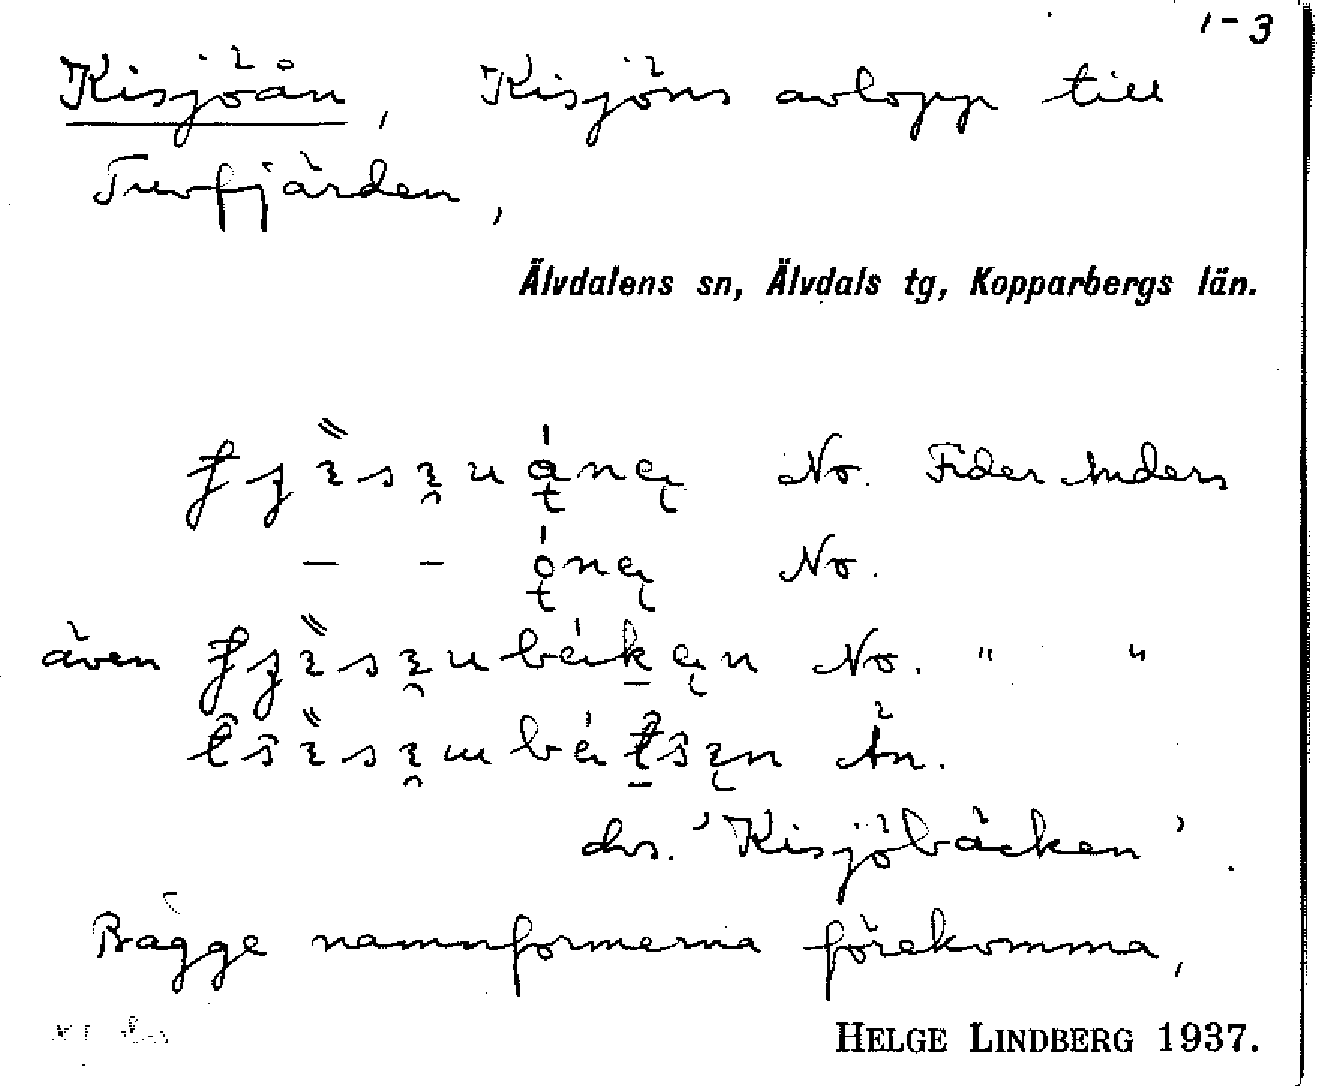 1-3
Kisjöån, Kisjöns avlopp till
Tuvfjärden,
Älvdalens sn, Älvdals tg, Kopparbergs län.
No. Fider Anders
No.
även No. " "
Ån.
dvs. 'Kisjöbäcken'.
Bägge namnformerna förekomma,
HELGE LINDBERG 1937.